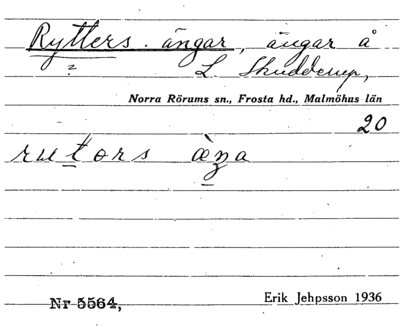 Rytters ängar, ängar å
? L. Skudderup,
Norra Rörums sn., Frosta hd., Malmöhus län
20
Nr 5564,
Erik Jehpsson 1936